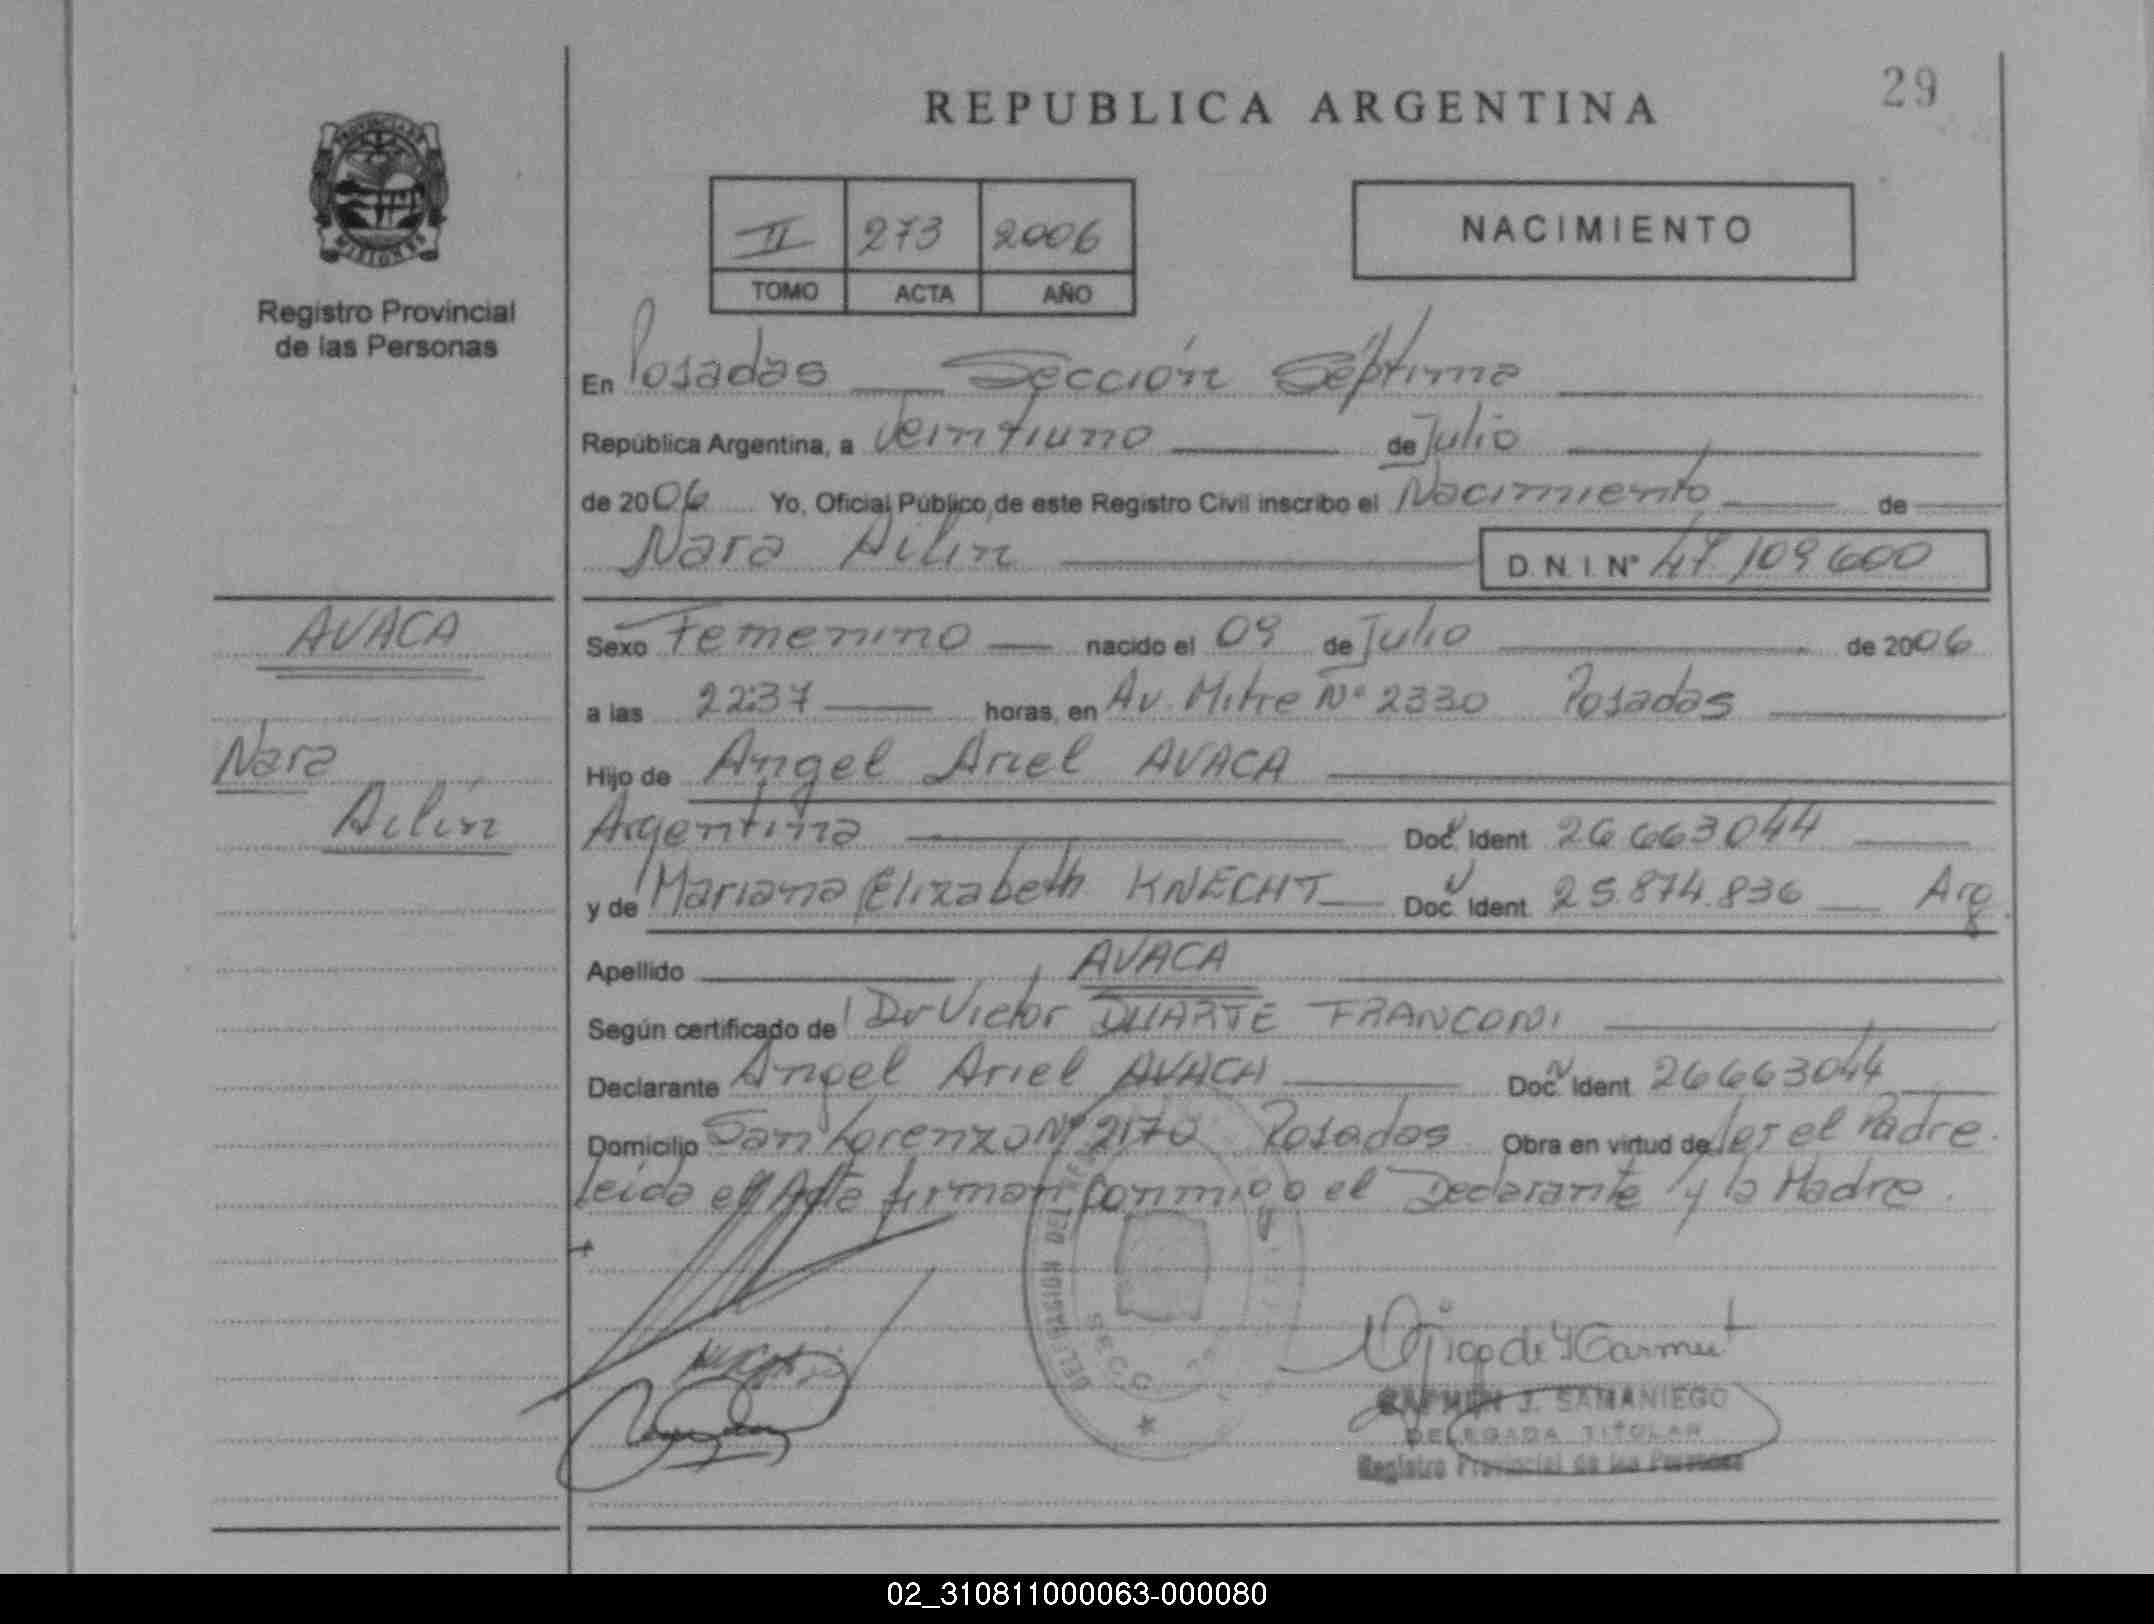 REPUBLICA ARGENTINA
29
PROVINCIA DE
MISIONES
Registro Provincial
de las Personas
II 273 2006
TOMO ACTA AÑO
NACIMIENTO
En Posadas Sección Séptima
República Argentina, a Veintiuno de Julio
de 2006 Yo, Oficial Público de este Registro Civil inscribo el Nacimiento de
Nara Ailin D.N.I. Nº 47.109.600
AVACA
Nara
Ailin
Sexo Femenino nacido el 09 de Julio de 2006
a las 22:37 horas, en Av. Mitre Nº 2330 Posadas
Hijo de Angel Ariel AVACA
Argentina Doc. Ident. 26663044
y de Mariana Elizabeth KNECHT Doc. Ident. 25.874.836 Arg.
Apellido AVACA
Según certificado de Dr Victor DUARTE FRANCONI
Declarante Angel Ariel AVACA Doc. Ident. 26663044
Domicilio San Lorenzo Nº 2170 Posadas Obra en virtud de ser el Padre.
Leída el Acta firman conmigo el Declarante y la Madre.
DELEGACION DEL
SECC
CARMEN J. SAMANIEGO
DELEGADA TITULAR
Registro Provincial de las Personas
02_310811000063-000080